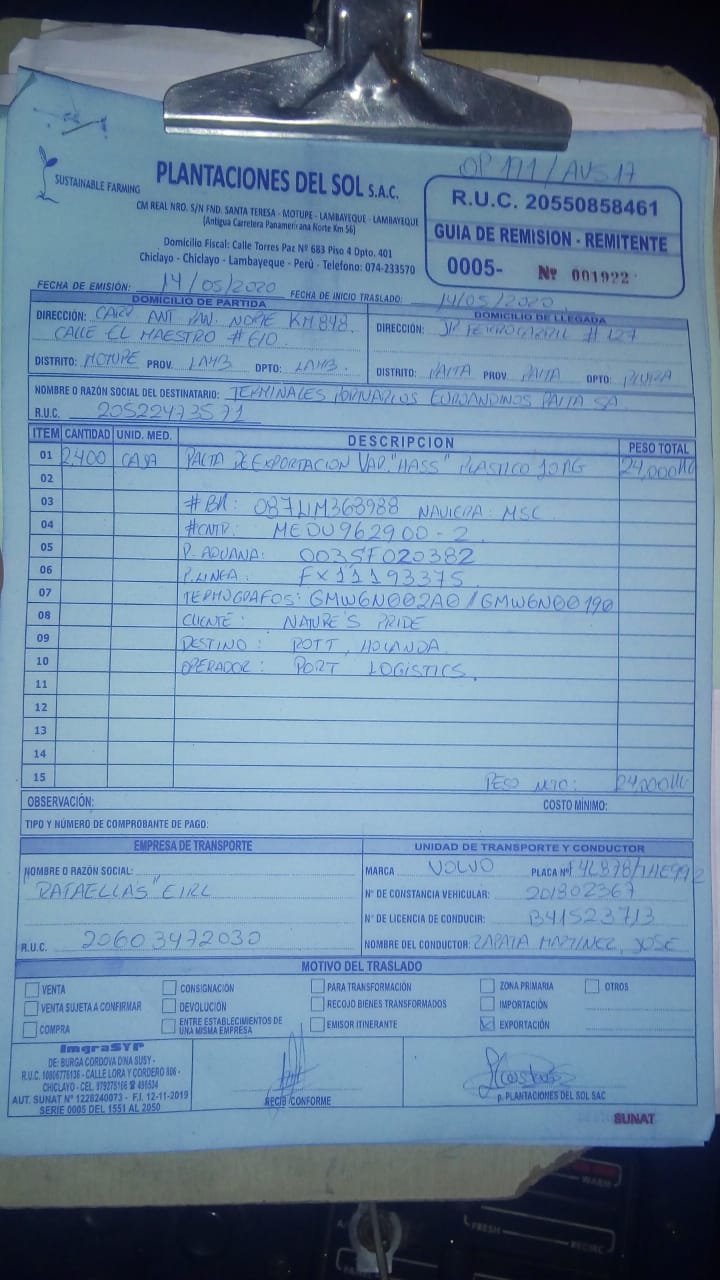 OP 171/AVS 17
SUSTAINABLE FARMING
PLANTACIONES DEL SOL S.A.C.
CM REAL NRO. S/N FND. SANTA TERESA - MOTUPE - LAMBAYEQUE - LAMBAYEQUE
(Antigua Carretera Panamericana Norte Km 56)
Domicilio Fiscal: Calle Torres Paz Nº 683 Piso 4 Dpto. 401
Chiclayo - Chiclayo - Lambayeque - Perú - Telefono: 074-233570
R.U.C. 20550858461
GUIA DE REMISION - REMITENTE
0005- Nº 001922
FECHA DE EMISIÓN: 14/05/2020 FECHA DE INICIO TRASLADO: 14/05/2020
DOMICILIO DE PARTIDA
DIRECCIÓN: CARR ANT PAN. NORTE KM 848.
CALLE EL MAESTRO #610
DISTRITO: MOTUPE PROV. LAMB DPTO: LAMB.
DOMICILIO DE LLEGADA
DIRECCIÓN: JR FERROCARRIL #127
DISTRITO: PAITA PROV. PAITA DPTO: PIURA
NOMBRE O RAZÓN SOCIAL DEL DESTINATARIO: TERMINALES PORTUARIOS EUROANDINOS PAITA SA
R.U.C. 20522473571
ITEM CANTIDAD UNID. MED. DESCRIPCION PESO TOTAL
01 2,400 CAJA PALTA DE EXPORTACION VAR. "HASS" PLASTICO 10 KG 24,000KG
02
03 #BK: 087LIM368988 NAVIERA: MSC
04 #CNTR: MEDU962900-2
05 P. ADUANA: 0035F020382
06 P. LINEA: FX11193375
07 TERMOGRAFOS: GMW6N002A0 / GMW6N00190
08 CLIENTE: NATURE'S PRIDE
09 DESTINO: ROTT, HOLANDA.
10 OPERADOR: PORT LOGISTICS.
11
12
13
14
15 PESO NETO: 24,000KG
OBSERVACIÓN: COSTO MÍNIMO:
TIPO Y NÚMERO DE COMPROBANTE DE PAGO:
EMPRESA DE TRANSPORTE
NOMBRE O RAZÓN SOCIAL:
"RAFAELLAS" EIRL
R.U.C. 20603472030
UNIDAD DE TRANSPORTE Y CONDUCTOR
MARCA VOLVO PLACA Nº
Nº DE CONSTANCIA VEHICULAR: 201802367
Nº DE LICENCIA DE CONDUCIR: B41523713
NOMBRE DEL CONDUCTOR: ZAPATA MARTINEZ, JOSE
MOTIVO DEL TRASLADO
VENTA CONSIGNACIÓN PARA TRANSFORMACIÓN ZONA PRIMARIA OTROS
VENTA SUJETA A CONFIRMAR DEVOLUCIÓN RECOJO BIENES TRANSFORMADOS IMPORTACIÓN
COMPRA ENTRE ESTABLECIMIENTOS DE UNA MISMA EMPRESA EMISOR ITINERANTE EXPORTACIÓN
ImgraSYP
DE: BURGA CORDOVA DINA SUSY -
R.U.C. 10806776136 - CALLE LORA Y CORDERO 806 -
CHICLAYO - CEL. 979275166 ☎ 496534
AUT. SUNAT Nº 1226240073 - F.I. 12-11-2019
SERIE 0005 DEL 1551 AL 2050
RECIBÍ CONFORME
p. PLANTACIONES DEL SOL SAC
SUNAT
WARM
FRESH
RECIRC